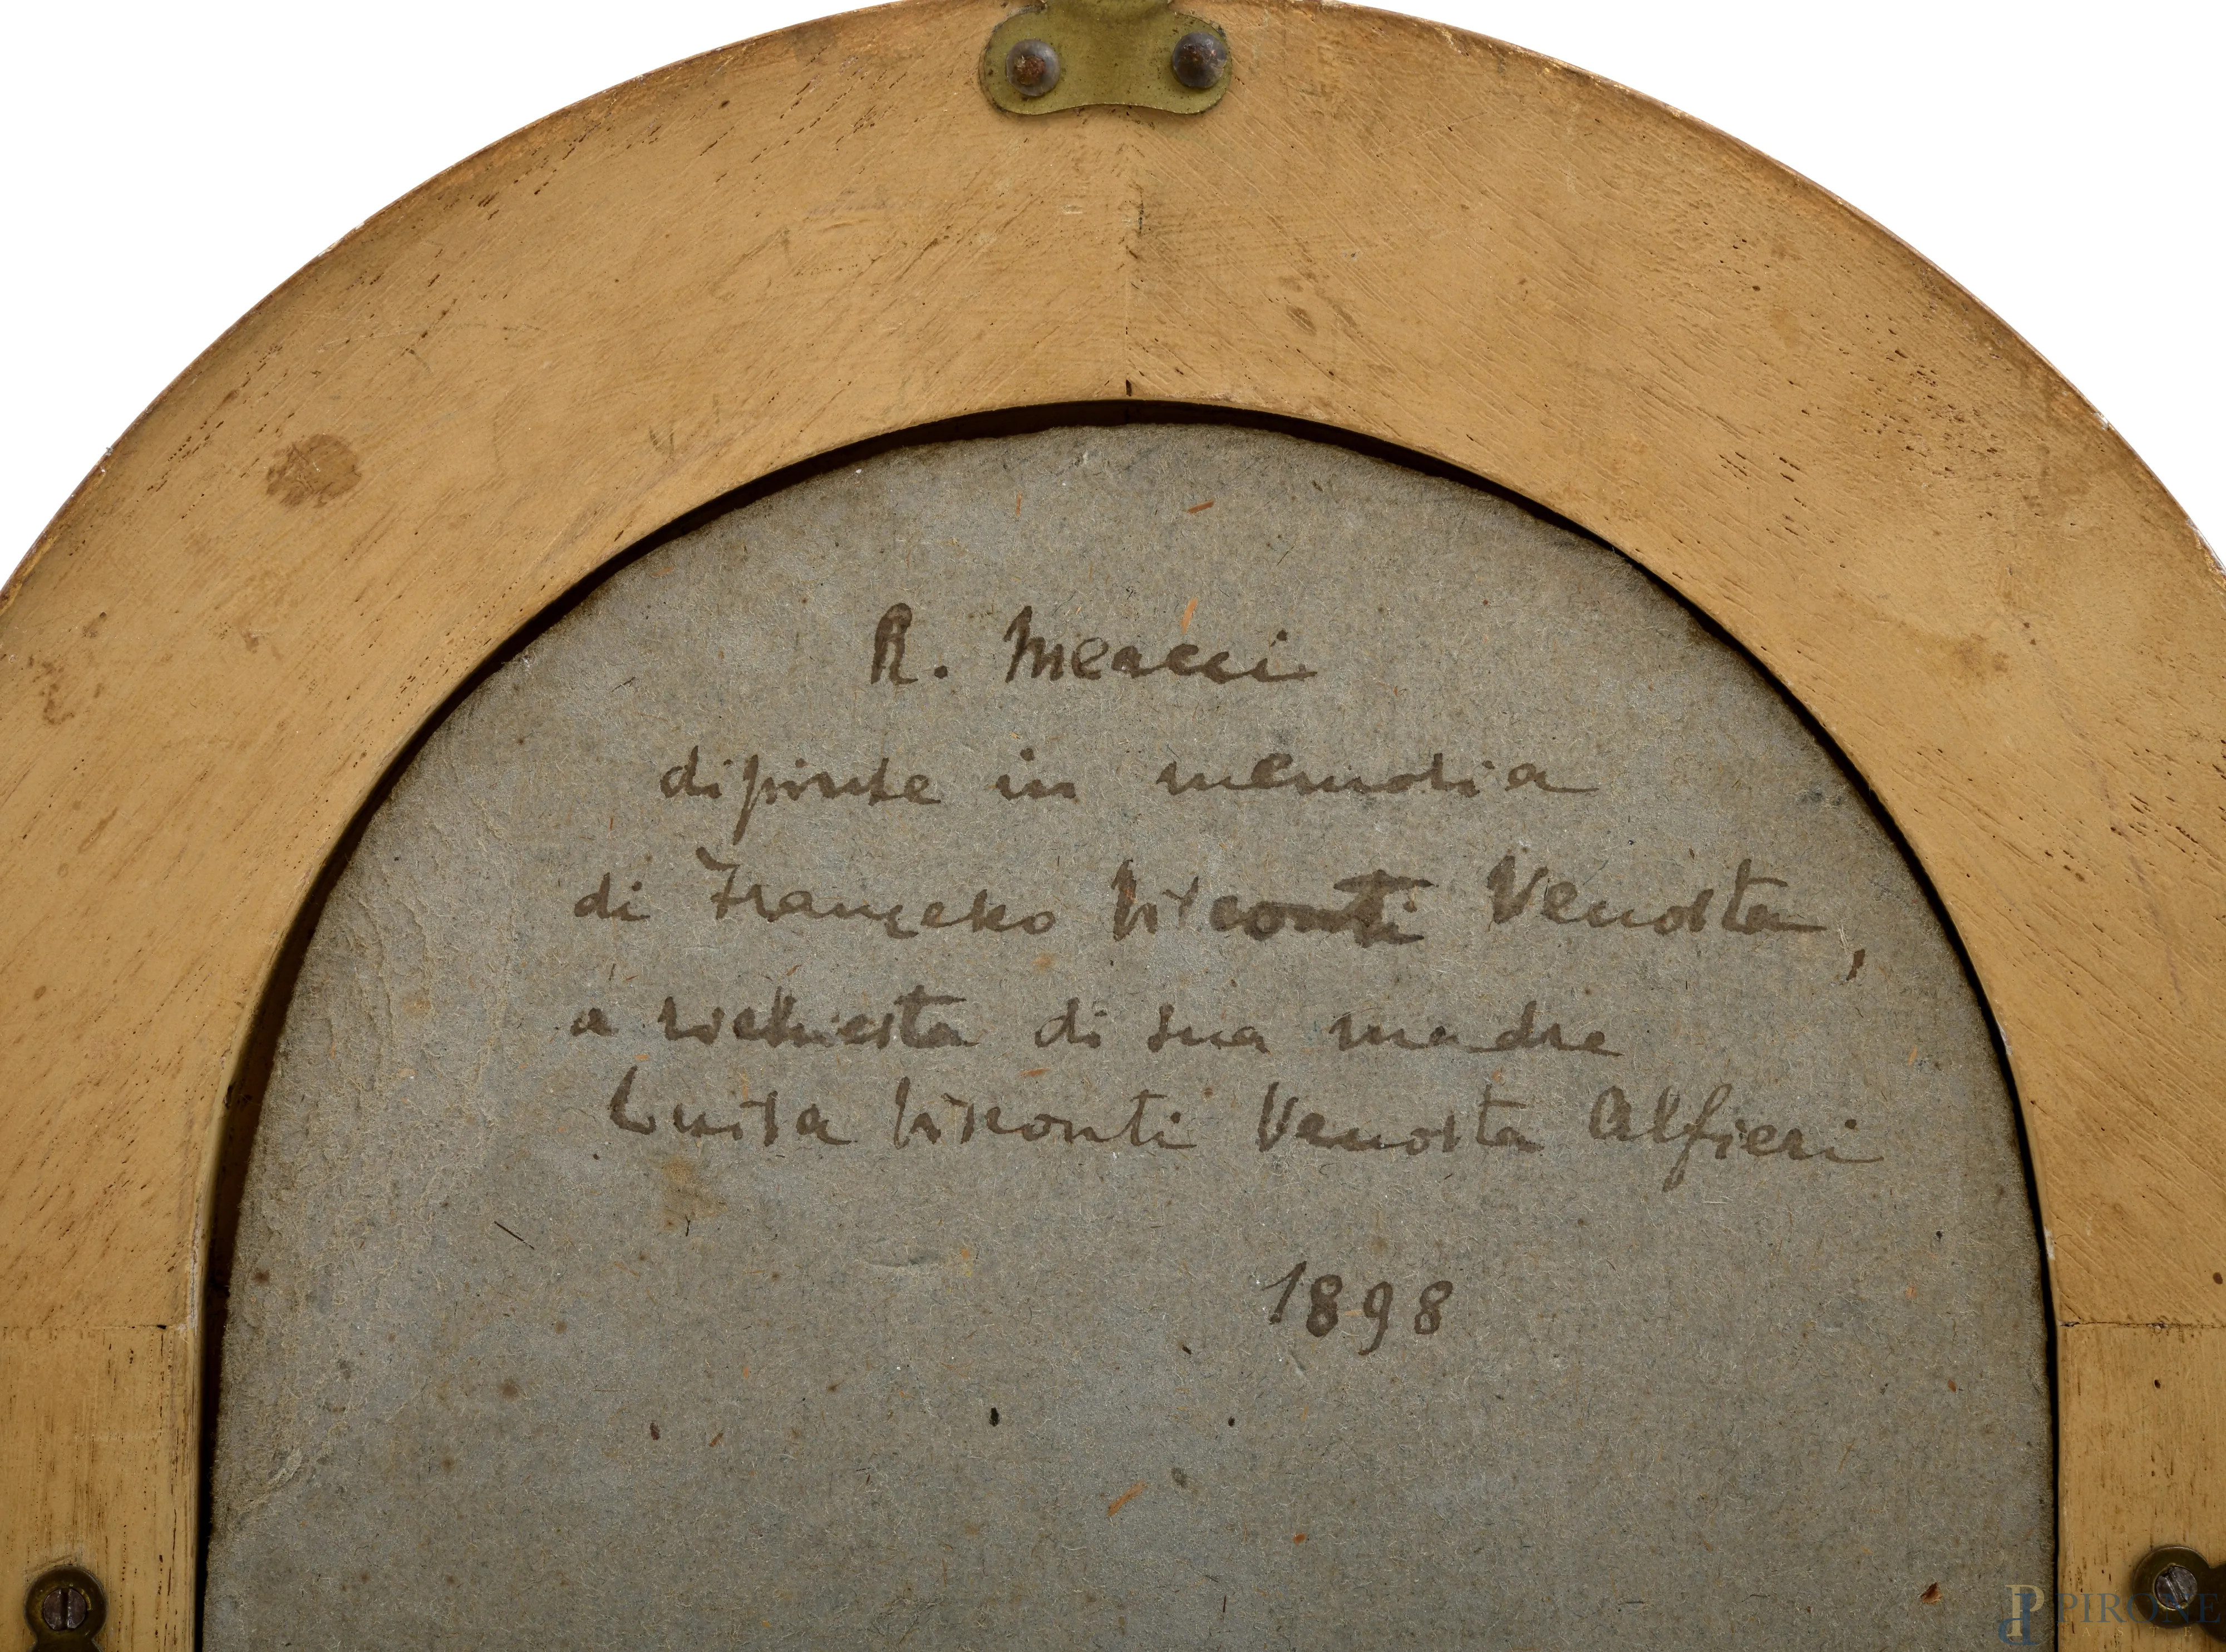 R. Meacci
dipinse in memoria
di Francesco Visconti Venosta,
a richiesta di sua madre
Luisa Visconti Venosta Alfieri
1898
PIRONE